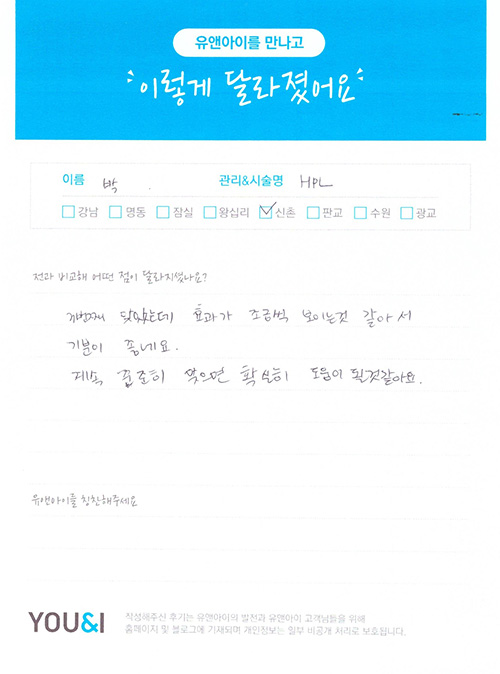 유앤아이를 만나고
이렇게 달라졌어요
이름 박 관리&시술명 HPL
강남 명동 잠실 왕십리 신촌 판교 수원 광교
전과 비교해 어떤 점이 달라지셨나요?
효과가 조금씩 보이는것 같아서
기분이 좋네요.
계속 꾸준히 맞으면 확실히 도움이 될것같아요.
유앤아이를 칭찬해주세요
YOU&I
작성해주신 후기는 유앤아이의 발전과 유앤아이 고객님들을 위해
홈페이지 및 블로그에 기재되며 개인정보는 일부 비공개 처리로 보호됩니다.